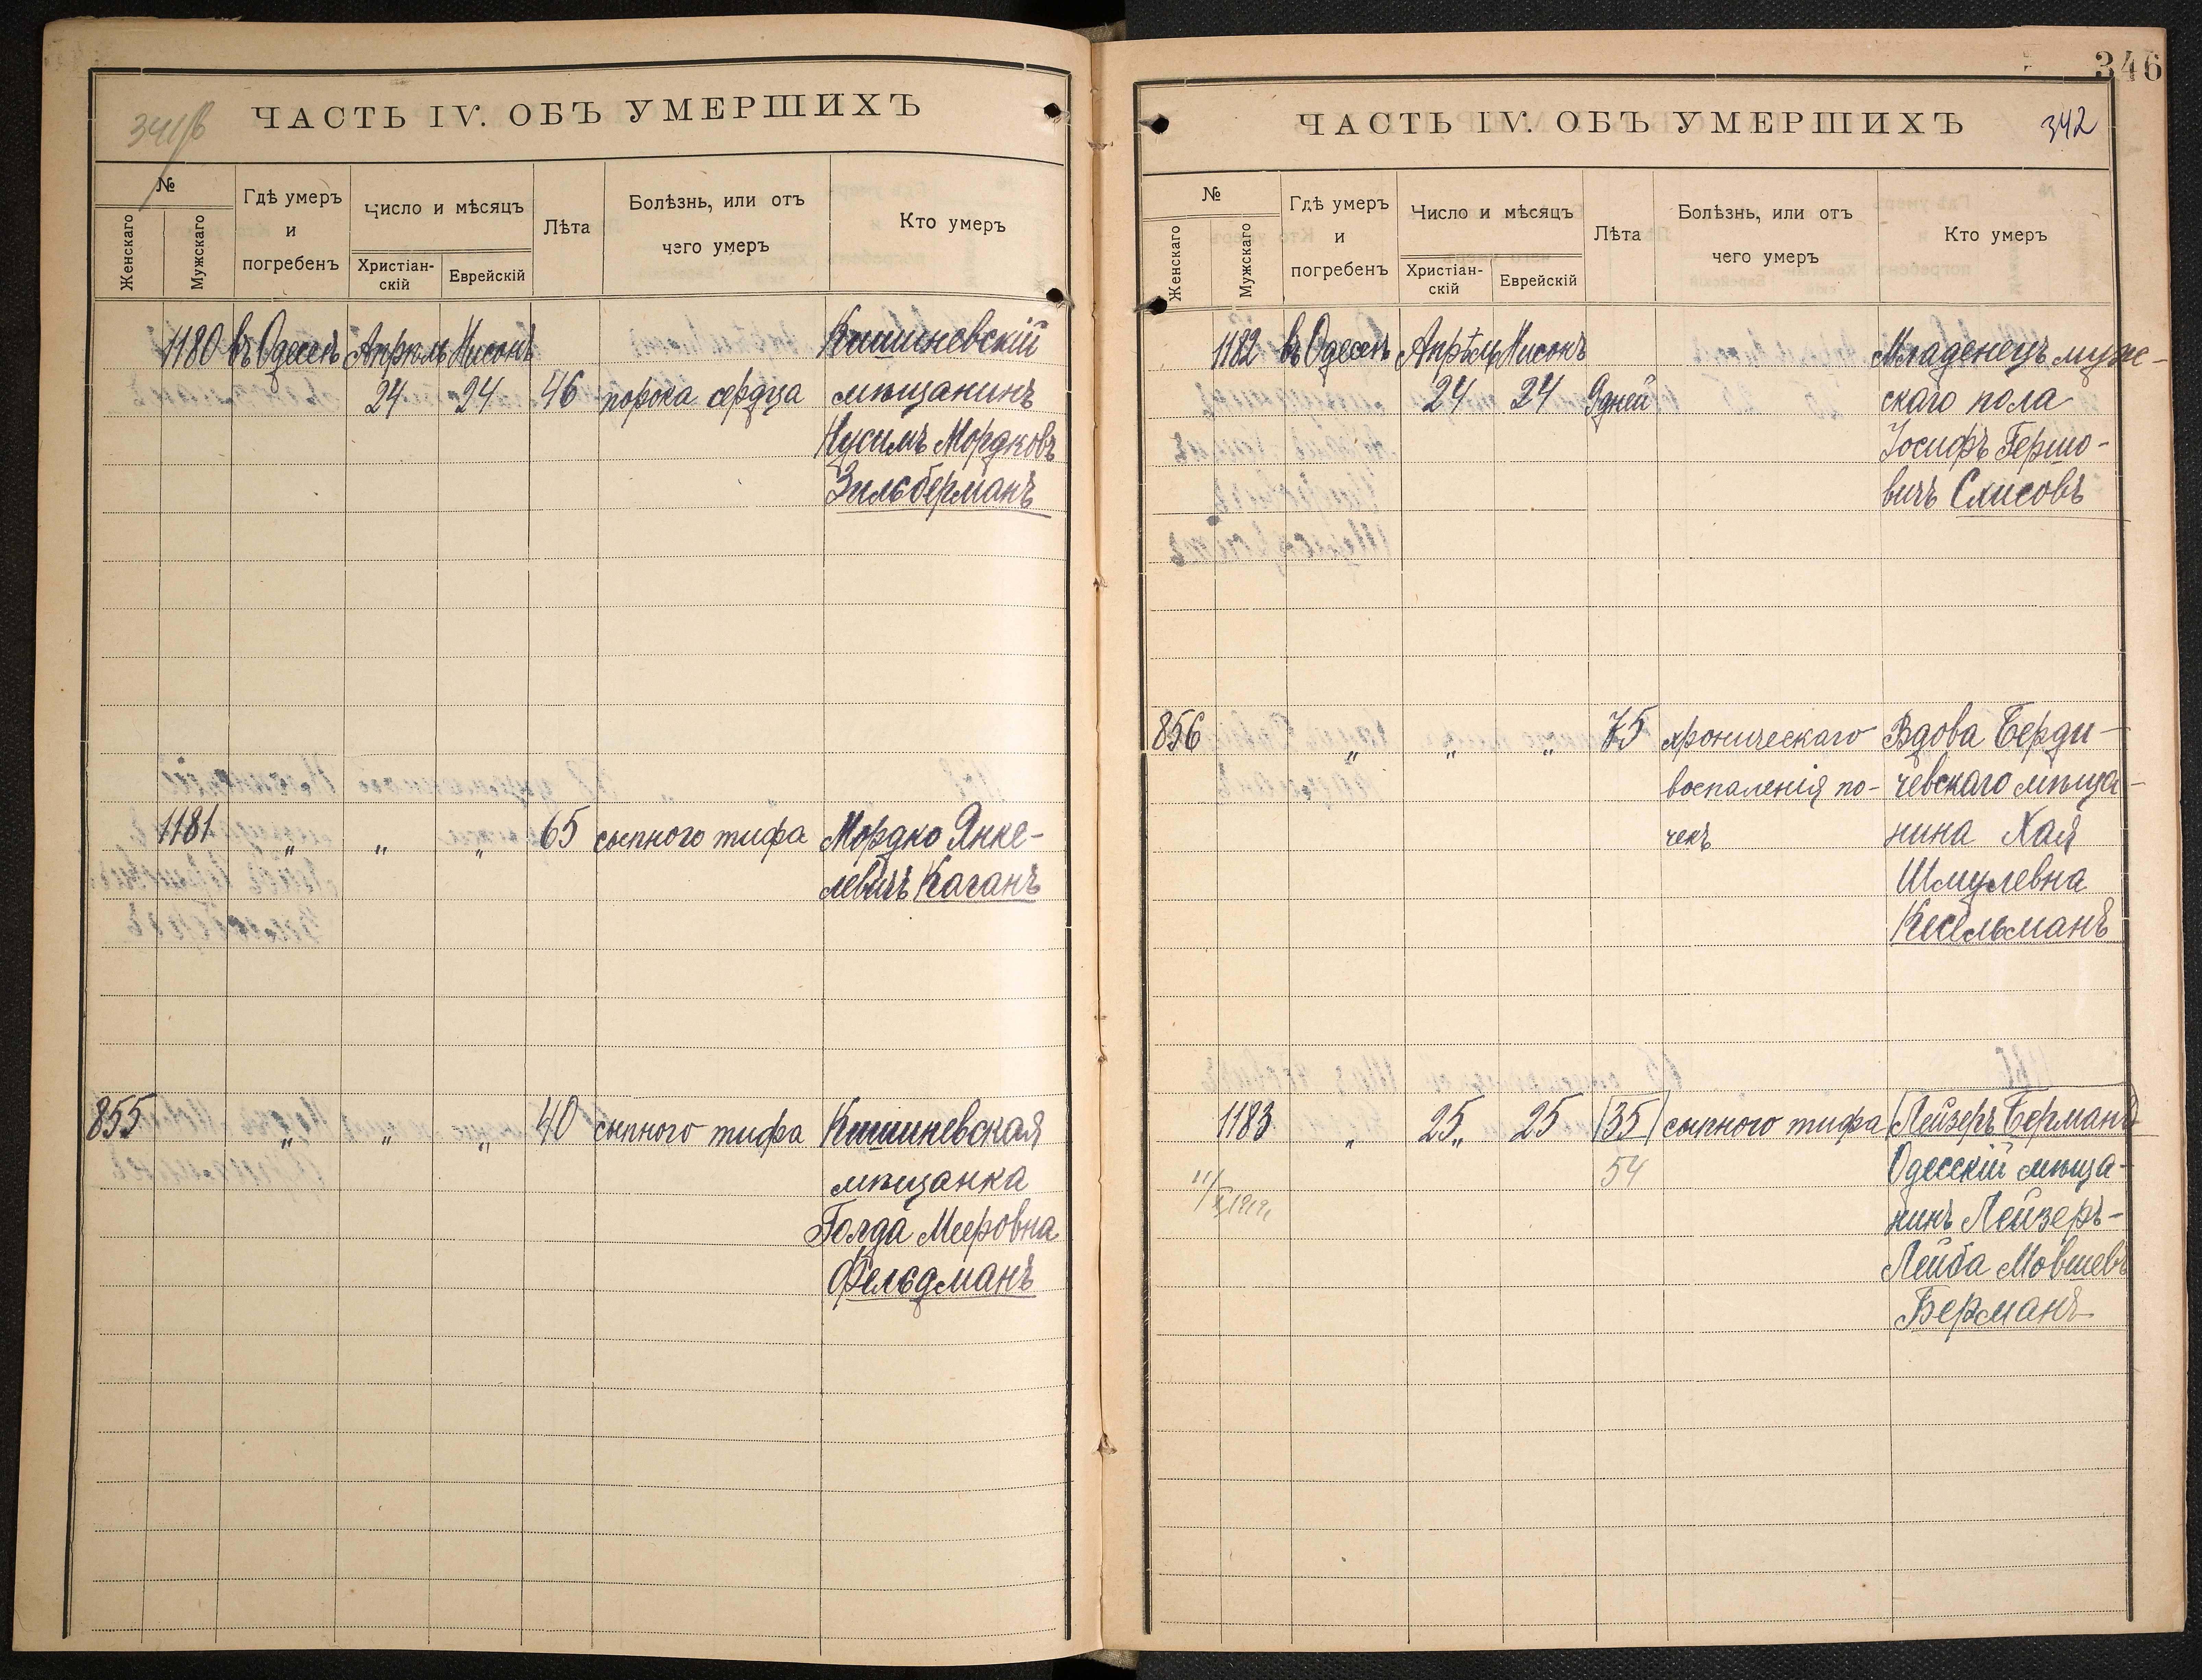 341/в
ЧАСТЬ IV. ОБЪ УМЕРШИХЪ
№
Женскаго
Мужскаго
Гдѣ умеръ
и
погребенъ
Число и мѣсяцъ
Христіан-
скій
Еврейскій
Лѣта
Болѣзнь, или отъ
чего умеръ
Кто умеръ
1180 въ Одессѣ Апрѣль Нисонъ Кишиневскій
24 24 46 порока сердца мѣщанинъ
Нусимъ Мордковъ
Зильберманъ
1181 „ „ „ 65 сыпного тифа Мордко Янке-
левичъ Каганъ
855 „ „ „ 40 сыпного тифа Кишиневская
мѣщанка
Голда Мееровна
Фельдманъ
346
ЧАСТЬ IV. ОБЪ УМЕРШИХЪ 342
№
Женскаго
Мужскаго
Гдѣ умеръ
и
погребенъ
Число и мѣсяцъ
Христіан-
скій
Еврейскій
Лѣта
Болѣзнь, или отъ
чего умеръ
Кто умеръ
1182 въ Одессѣ Апрѣль Нисонъ Младенецъ муж-
24 24 9 дней скаго пола
Іосифъ Гершо-
вичъ Слисовъ
856 „ „ „ 75 хроническаго Вдова Берди-
воспаленія по- чевскаго мѣща-
чекъ нина Хая
Шмулевна
Кесельманъ
1183 „ 25„ 25 35 сыпного тифа Лейзеръ Берманъ
54 Одесскій мѣща-
нинъ Лейзеръ-
Лейба Мовшевъ
Берманъ